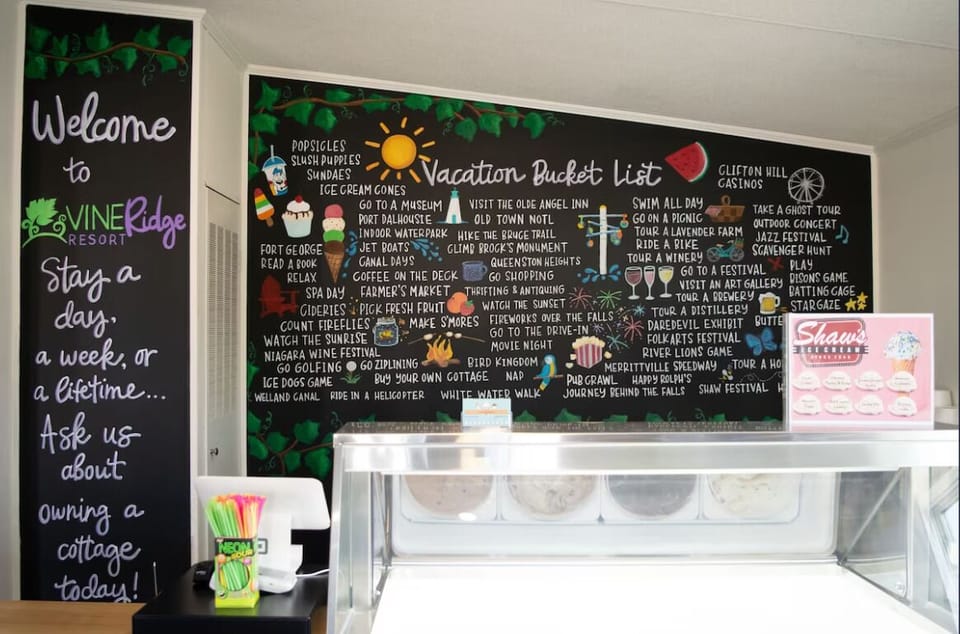 Welcome
to
VINERidge
RESORT
Stay a
day,
a week, or
a lifetime...
Ask us
about
owning a
cottage
today!
Vacation Bucket List
POPSICLES
SLUSH PUPPIES
SUNDAES
ICE CREAM CONES
GO TO A MUSEUM
PORT DALHOUSIE
INDOOR WATERPARK
JET BOATS
CANAL DAYS
COFFEE ON THE DECK
FORT GEORGE
READ A BOOK
RELAX
SPA DAY
FARMER'S MARKET
CIDERIES
PICK FRESH FRUIT
COUNT FIREFLIES
MAKE S'MORES
WATCH THE SUNRISE
NIAGARA WINE FESTIVAL
GO GOLFING
GO ZIPLINING
ICE DOGS GAME
BUY YOUR OWN COTTAGE
WELLAND CANAL
RIDE IN A HELICOPTER
VISIT THE OLDE ANGEL INN
OLD TOWN NOTL
HIKE THE BRUCE TRAIL
CLIMB BROCK'S MONUMENT
QUEENSTON HEIGHTS
GO SHOPPING
THRIFTING & ANTIQUING
WATCH THE SUNSET
FIREWORKS OVER THE FALLS
GO TO THE DRIVE-IN
MOVIE NIGHT
BIRD KINGDOM
NAP
WHITE WATER WALK
SWIM ALL DAY
GO ON A PICNIC
TOUR A LAVENDER FARM
RIDE A BIKE
TOUR A WINERY
GO TO A FESTIVAL
VISIT AN ART GALLERY
TOUR A BREWERY
TOUR A DISTILLERY
DAREDEVIL EXHIBIT
FOLK ARTS FESTIVAL
RIVER LIONS GAME
MERRITTVILLE SPEEDWAY
PUB CRAWL
HAPPY ROLPH'S
JOURNEY BEHIND THE FALLS
SHAW FESTIVAL
CLIFTON HILL
CASINOS
TAKE A GHOST TOUR
OUTDOOR CONCERT
JAZZ FESTIVAL
SCAVENGER HUNT
PLAY
BISONS GAME
BATTING CAGE
STARGAZE
BUTTE
TOUR A HO
H
Shaw's
ICE CREAM
NEON
SOUR